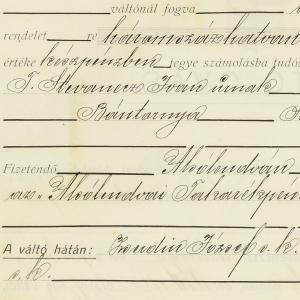 váltónál fogva
rendelet re háromszázhatvan
értéke készpénzben tegye számolásba tudós
T. Stvanecz Iván úrnak
Bántornya
Fizetendő Alsólendván
az „Alsólendvai Takarékpén
A váltó hátán: Zendin József s. k.
s. k.